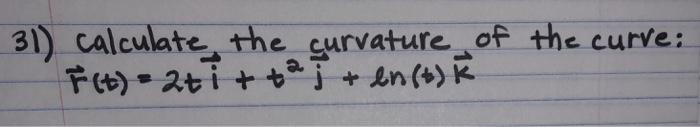 31) Calculate the curvature of the curve:
r⃗(t) = 2t i⃗ + t² j⃗ + ln(t) k⃗